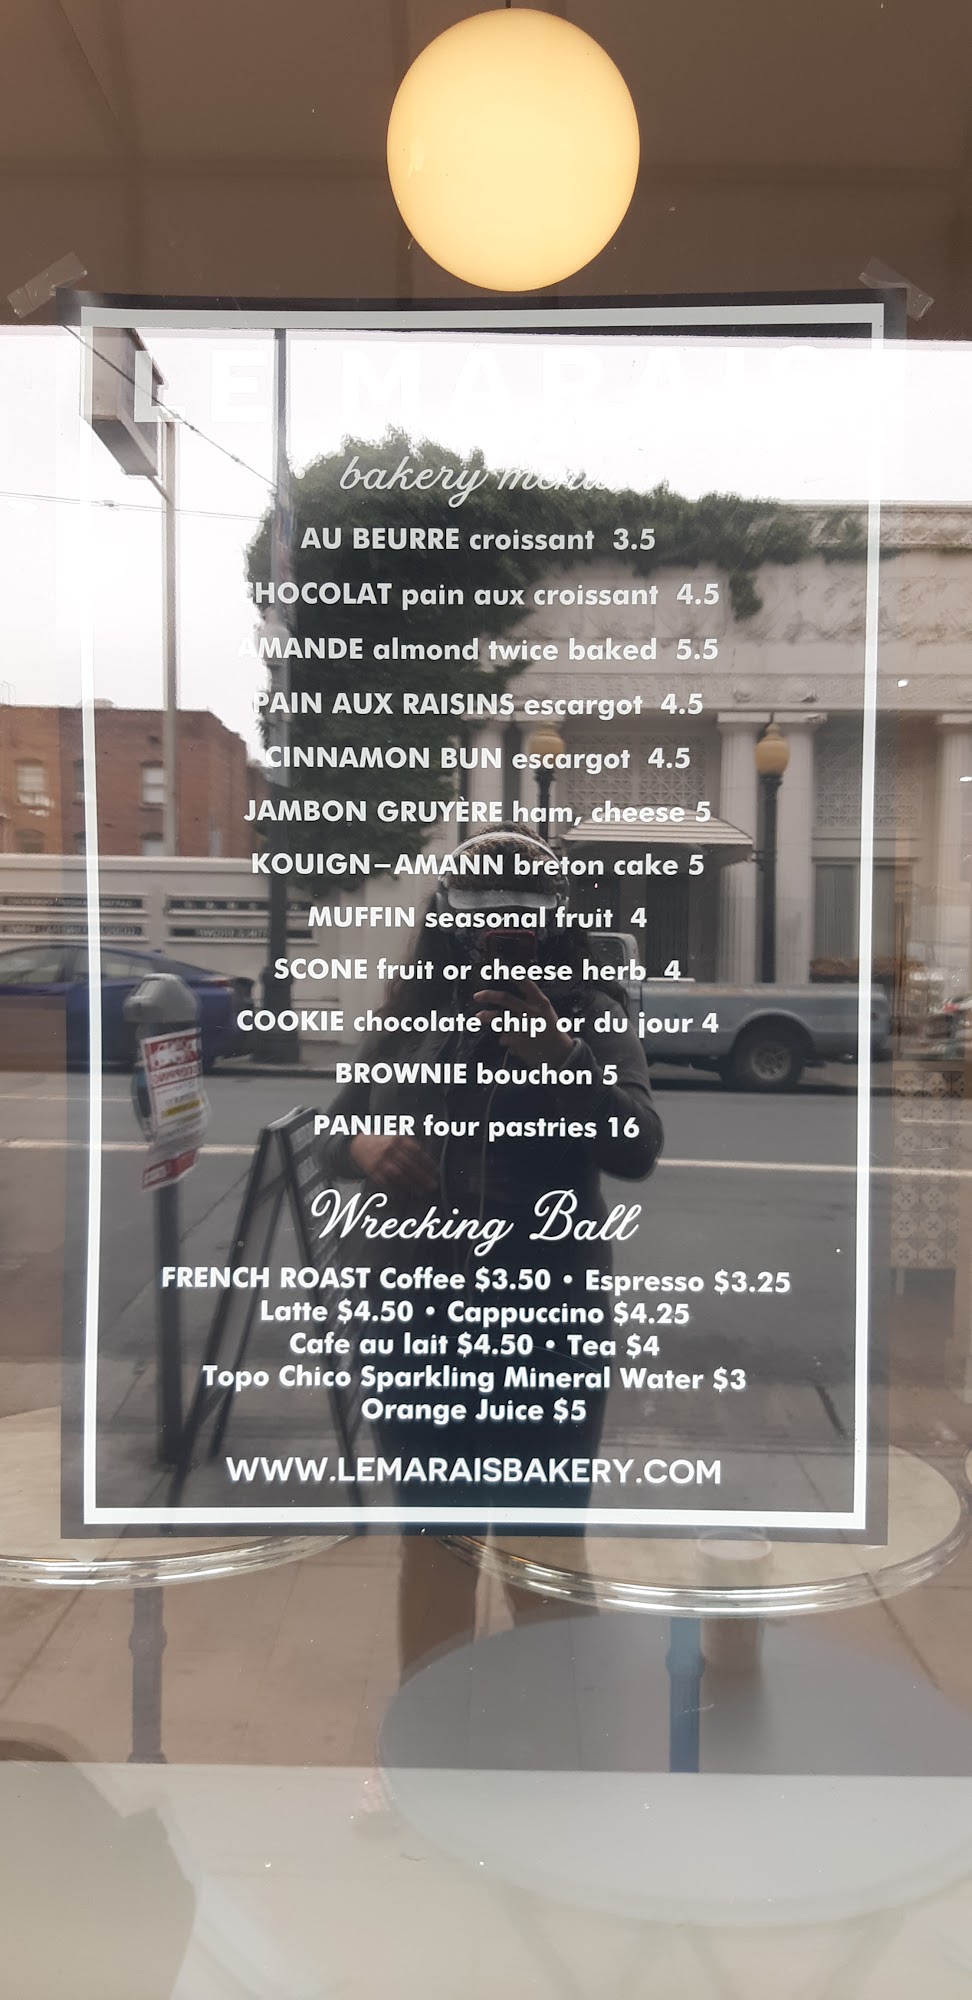 LE MARAIS
bakery menu
AU BEURRE croissant 3.5
CHOCOLAT pain aux croissant 4.5
AMANDE almond twice baked 5.5
PAIN AUX RAISINS escargot 4.5
CINNAMON BUN escargot 4.5
JAMBON GRUYÈRE ham, cheese 5
KOUIGN–AMANN breton cake 5
MUFFIN seasonal fruit 4
SCONE fruit or cheese herb 4
COOKIE chocolate chip or du jour 4
BROWNIE bouchon 5
PANIER four pastries 16
Wrecking Ball
FRENCH ROAST Coffee $3.50 • Espresso $3.25
Latte $4.50 • Cappuccino $4.25
Cafe au lait $4.50 • Tea $4
Topo Chico Sparkling Mineral Water $3
Orange Juice $5
WWW.LEMARAISBAKERY.COM